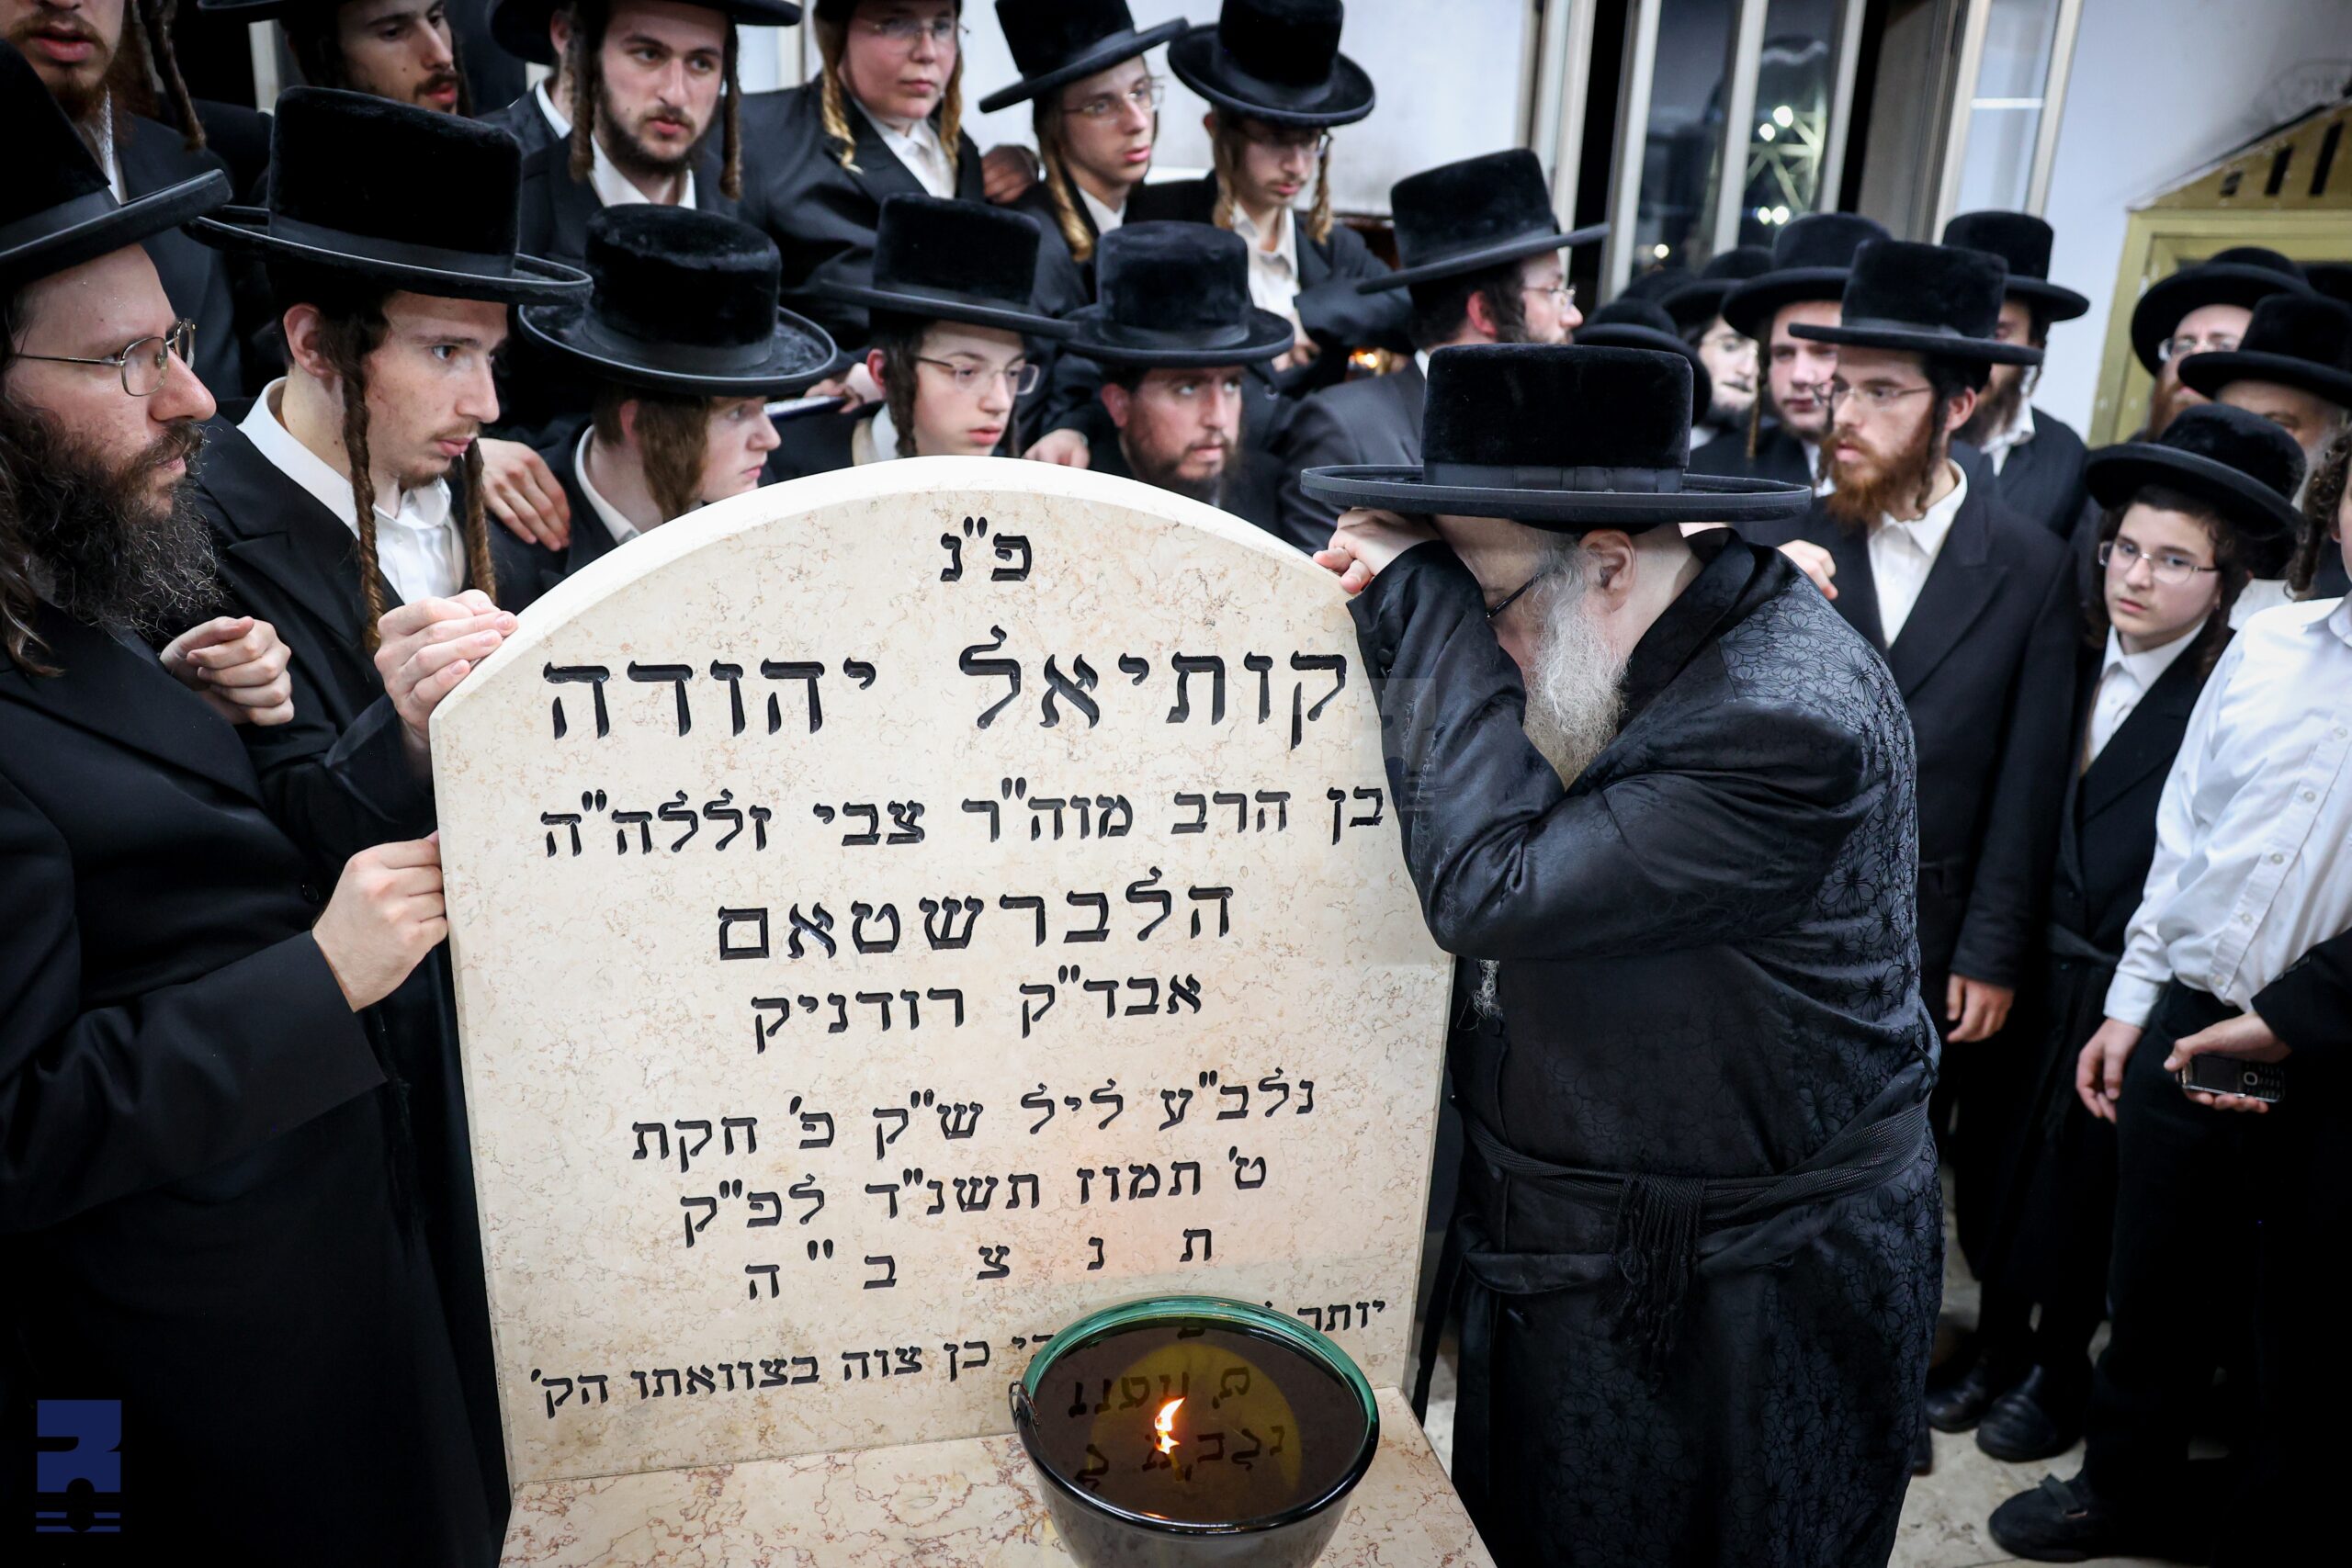 פ"נ
קותיאל יהודה
בן הרב מוה"ר צבי זללה"ה
הלברשטאם
אבד"ק רודניק
נלב"ע ליל ש"ק פ' חקת
ט' תמוז תשנ"ד לפ"ק
ת נ צ ב "ה
יותר כן צוה בצוואתו הק'